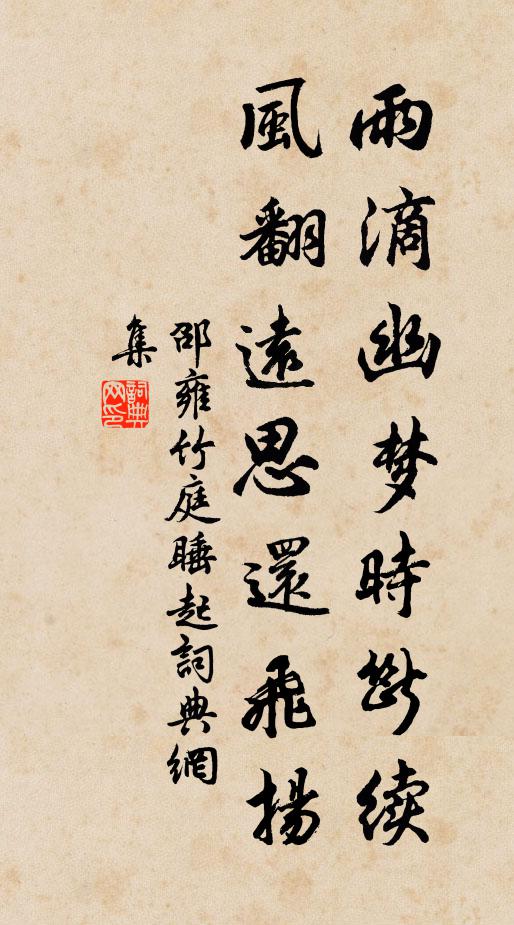 雨滴幽梦時断续
風翻遠思還飛揚
邵雍竹庭睡起詞典網
集
詞典網印